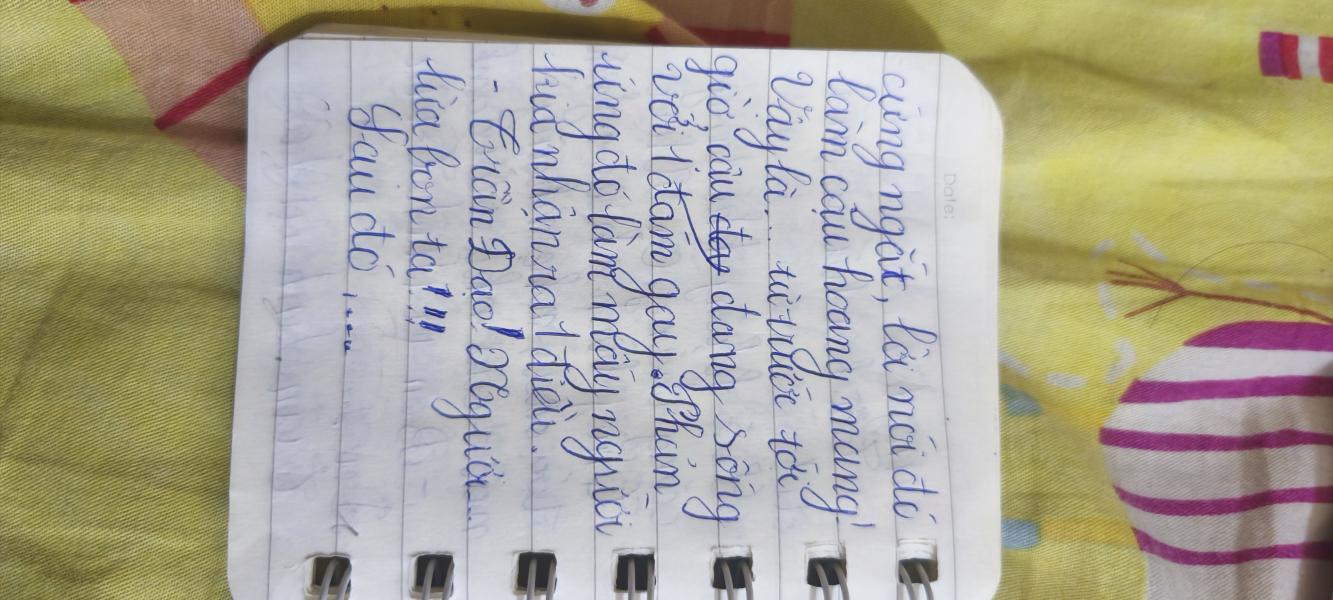 Date:
cứng ngắt, lời nói đó
làm cậu hoang mang!
Vậy là... từ trước tới
giờ cậu đang sống
với 1 đám gay. Phản
ứng đó làm mấy người
kia nhận ra 1 điều.
- Trần Đạo! Người...
lừa bọn ta!!!
Sau đó .....